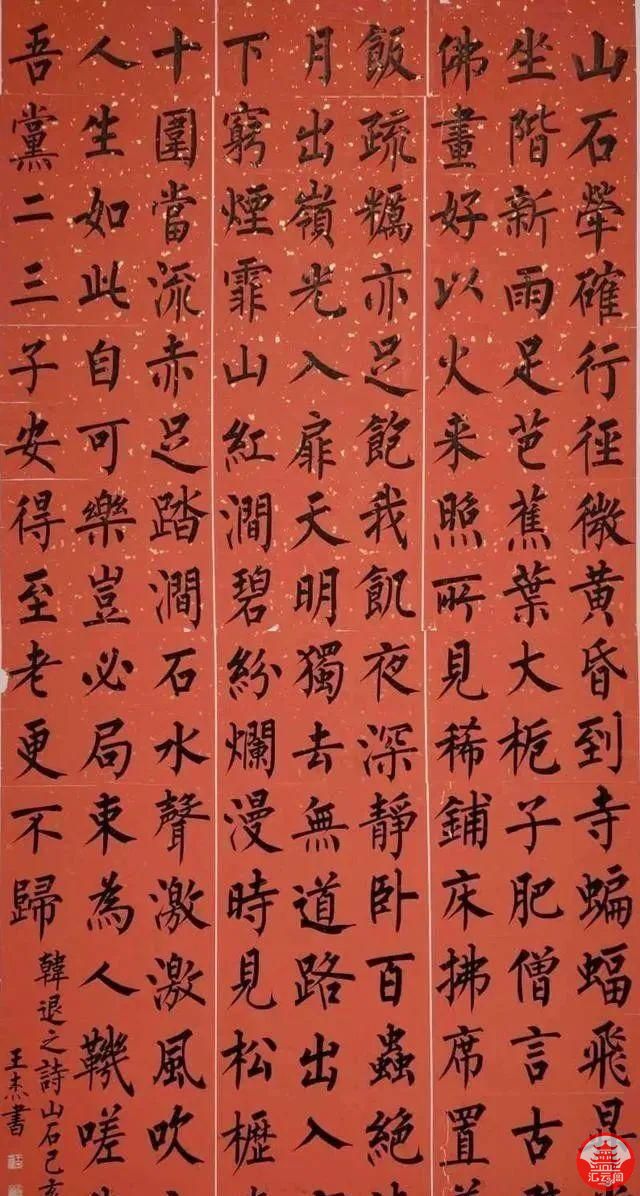 山石犖確行徑微黃昏到寺蝙蝠飛昇
坐階新雨足芭蕉葉大梔子肥僧言古
佛畫好以火来照所見稀鋪床拂席置
飯疏糲亦足飽我飢夜深靜卧百蟲絕
月出嶺光入扉天明獨去無道路出入
下窮煙霏山紅澗碧紛爛漫時見松櫪
十圍當流赤足踏澗石水聲激激風吹
人生如此自可樂豈必局束為人鞿嗟
吾黨二三子安得至老更不歸
韓退之詩山石己亥
王杰書
汇云阁